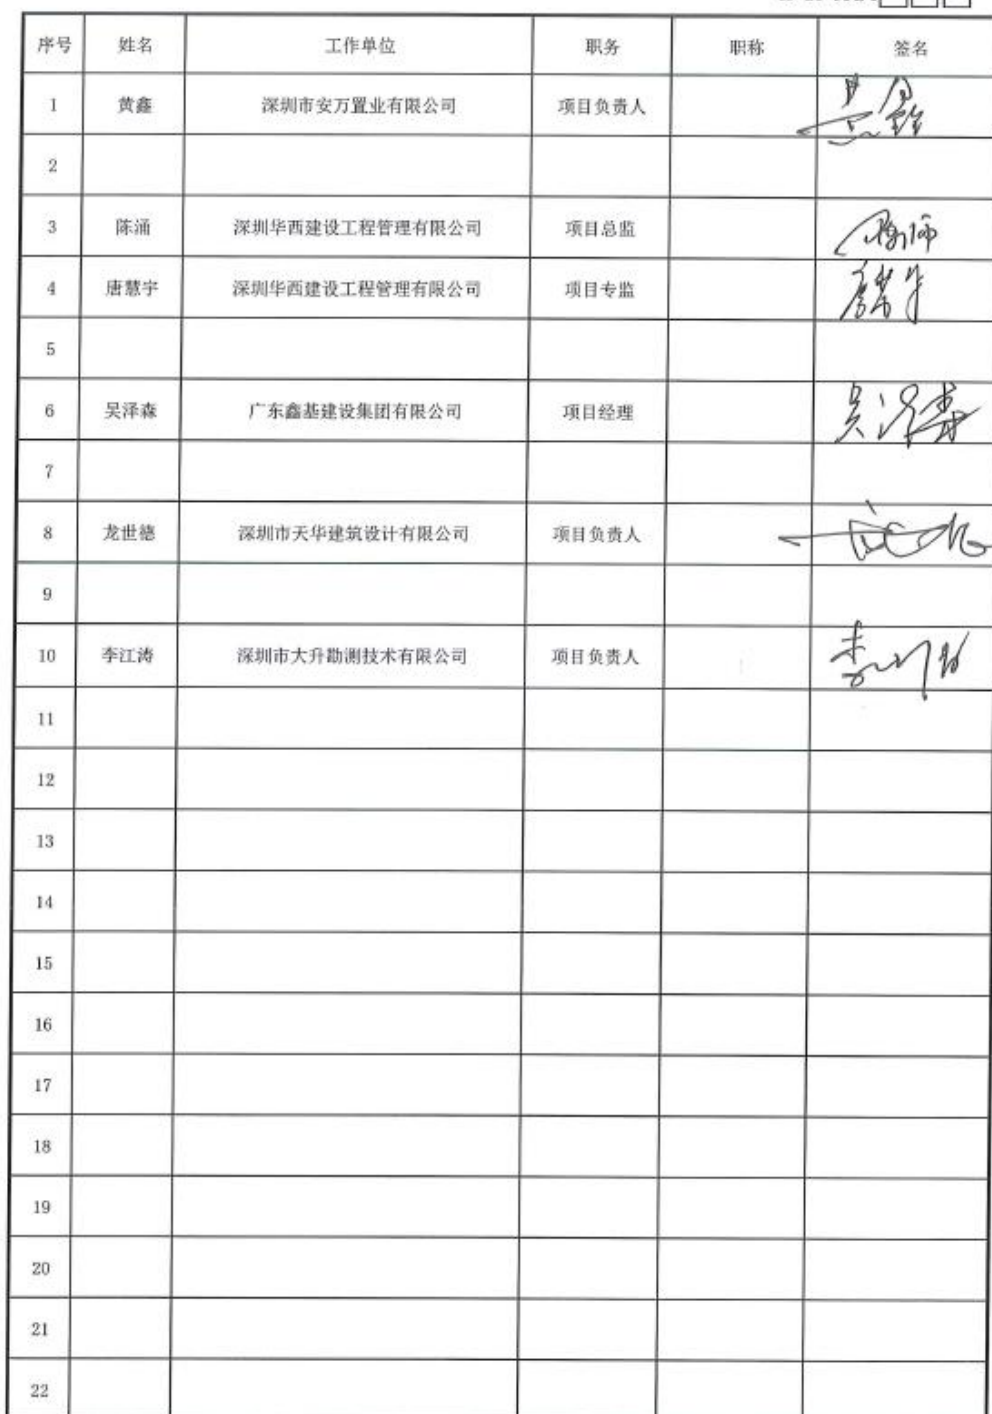 序号 姓名 工作单位 职务 职称 签名
1 黄鑫 深圳市安万置业有限公司 项目负责人
2
3 陈涌 深圳华西建设工程管理有限公司 项目总监
4 唐慧宇 深圳华西建设工程管理有限公司 项目专监
5
6 吴泽森 广东鑫基建设集团有限公司 项目经理 吴泽森
7
8 龙世德 深圳市天华建筑设计有限公司 项目负责人
9
10 李江涛 深圳市大升勘测技术有限公司 项目负责人
11
12
13
14
15
16
17
18
19
20
21
22